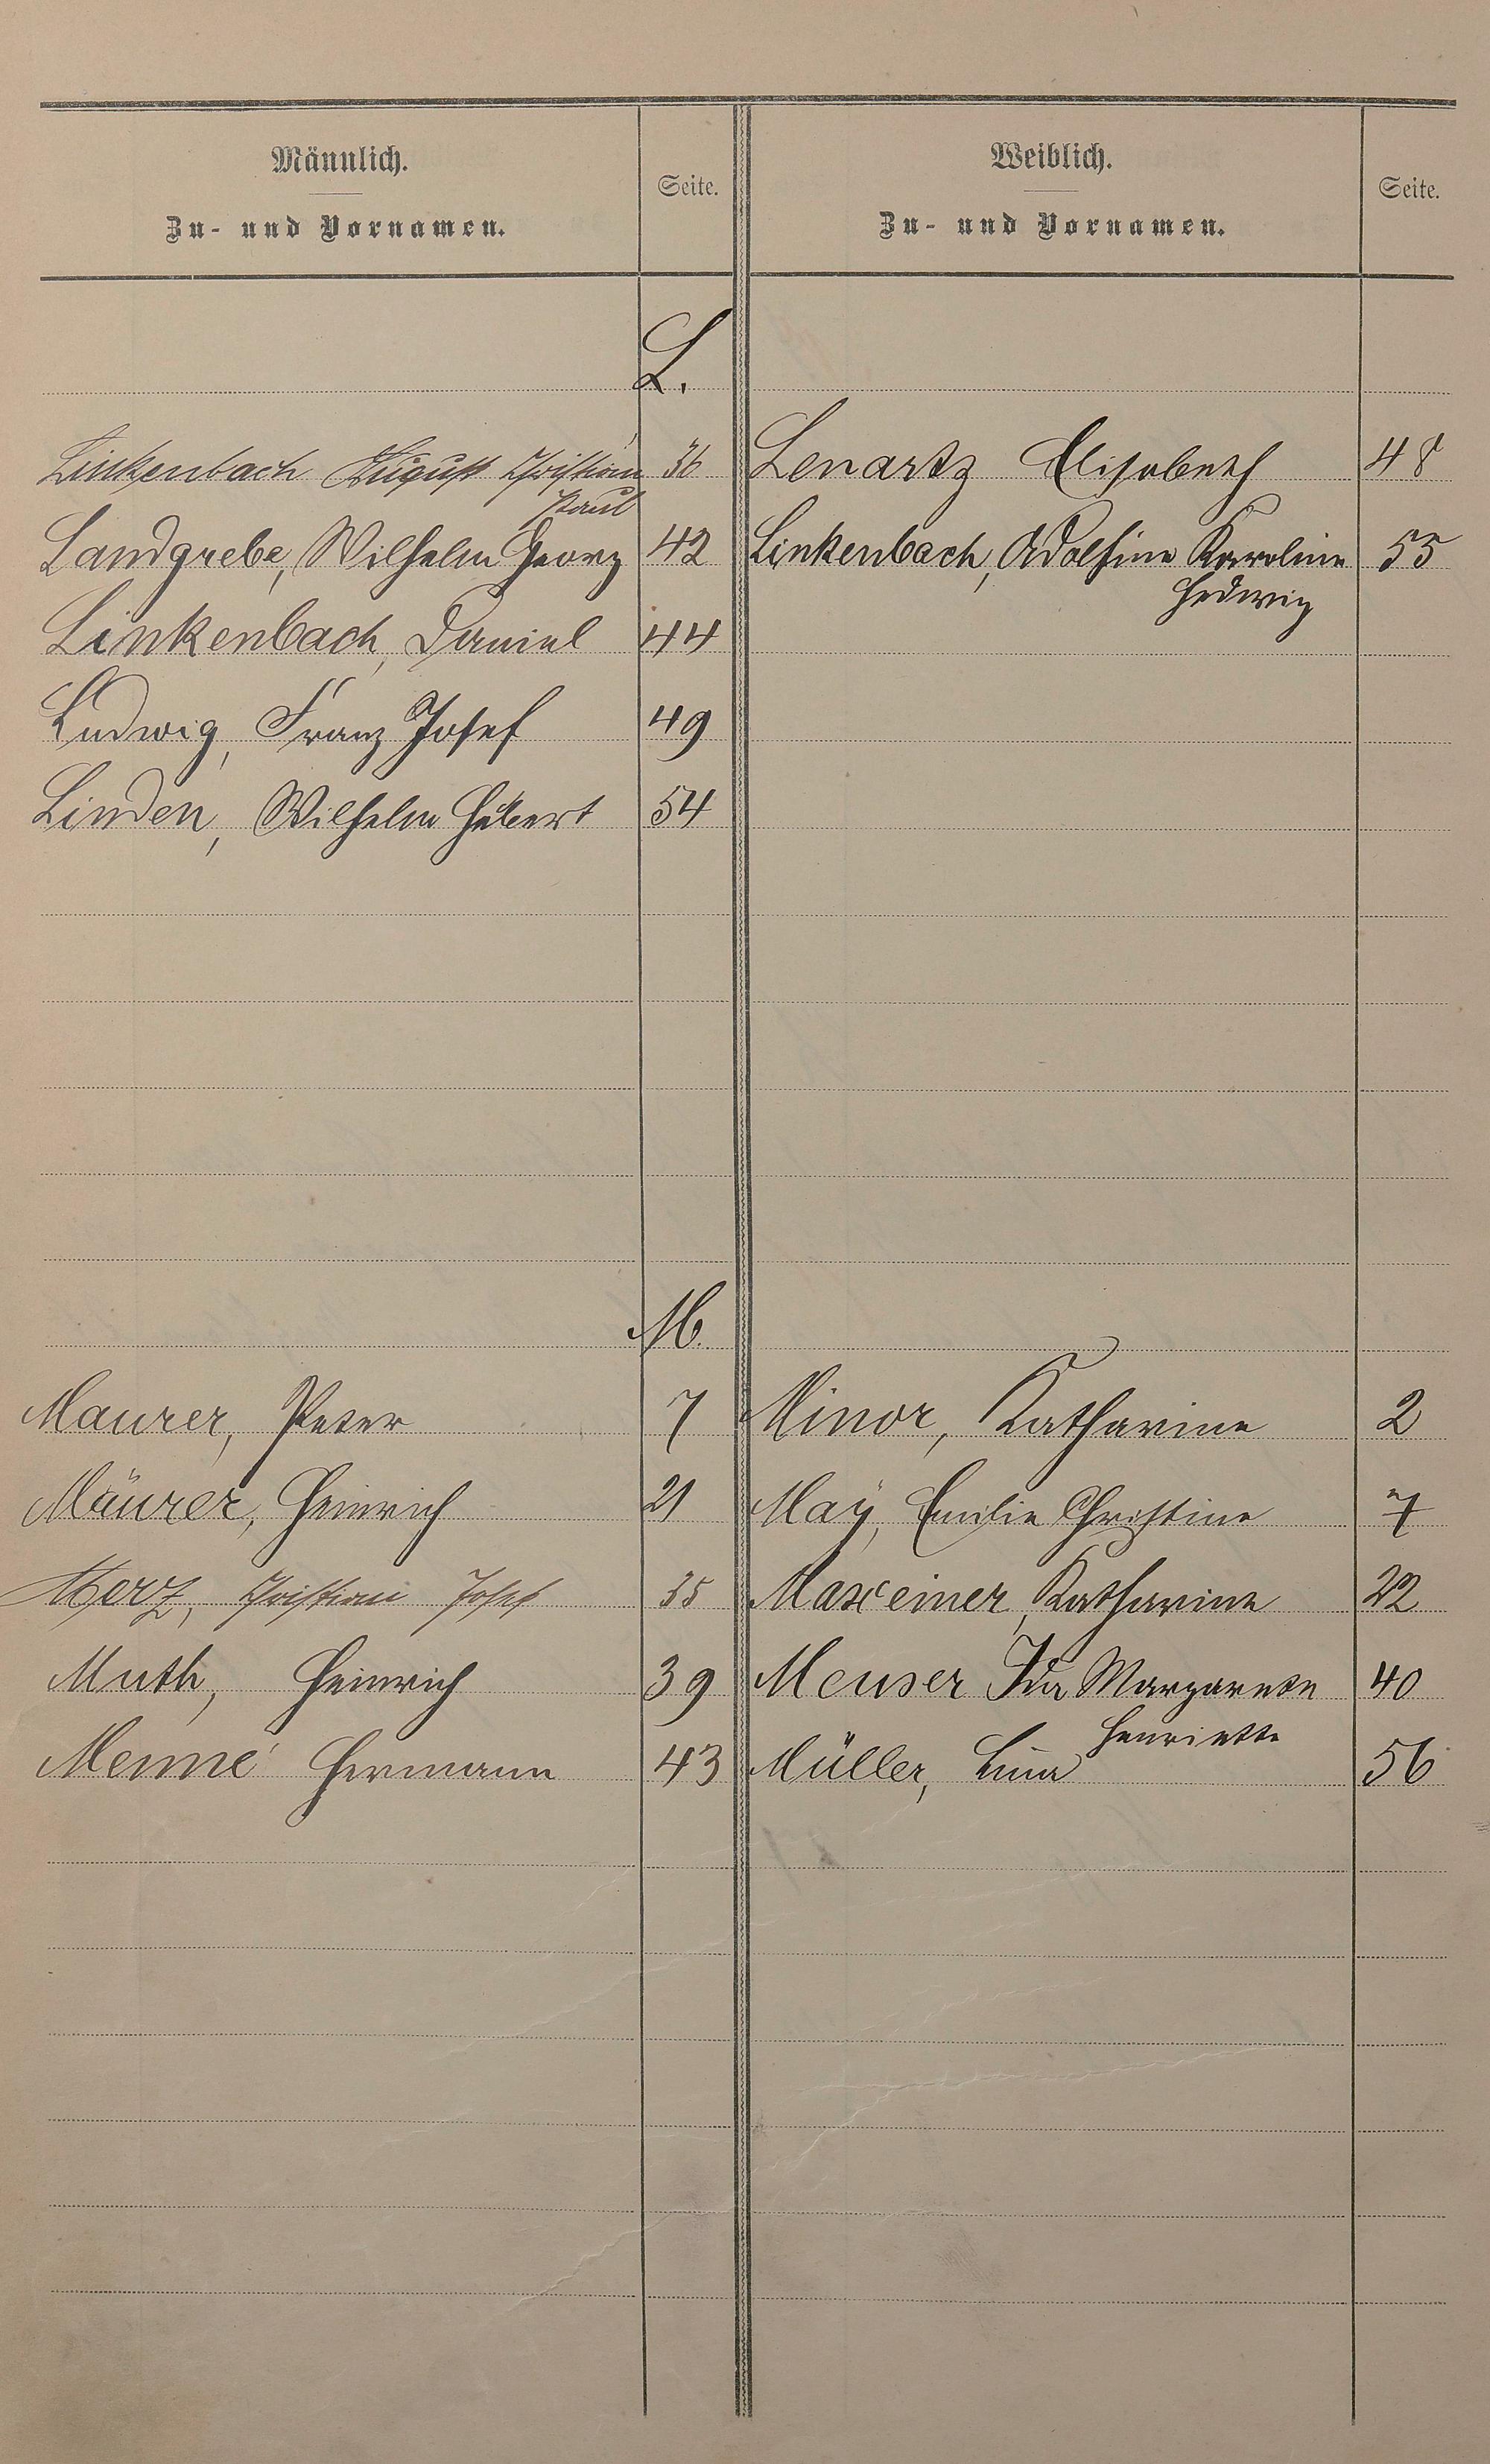 Männlich.
Zu- und Vornamen.
Seite.
Weiblich.
Zu- und Vornamen.
Seite.
L.
Linkenbach August Christian 36 Lenartz Elisabeth 48
Paul
Landgrebe, Wilhelm Georg 42 Linkenbach, Adolfine Karoline 55
Hedwig
Linkenbach, Daniel 44
Ludwig, Franz Josef 49
Linden, Wilhelm Hubert 54
M.
Maurer, Peter 7 Minor, Katharina 2
Mäurer, Heinrich 21 Maÿ, Emilie Christine 7
Merz, Christian Josef 35 Maxeiner, Katharina 22
Muth, Heinrich 39 Meuser Ida Margarete 40
Henriette
Menné Hermann 43 Müller, Lina 56